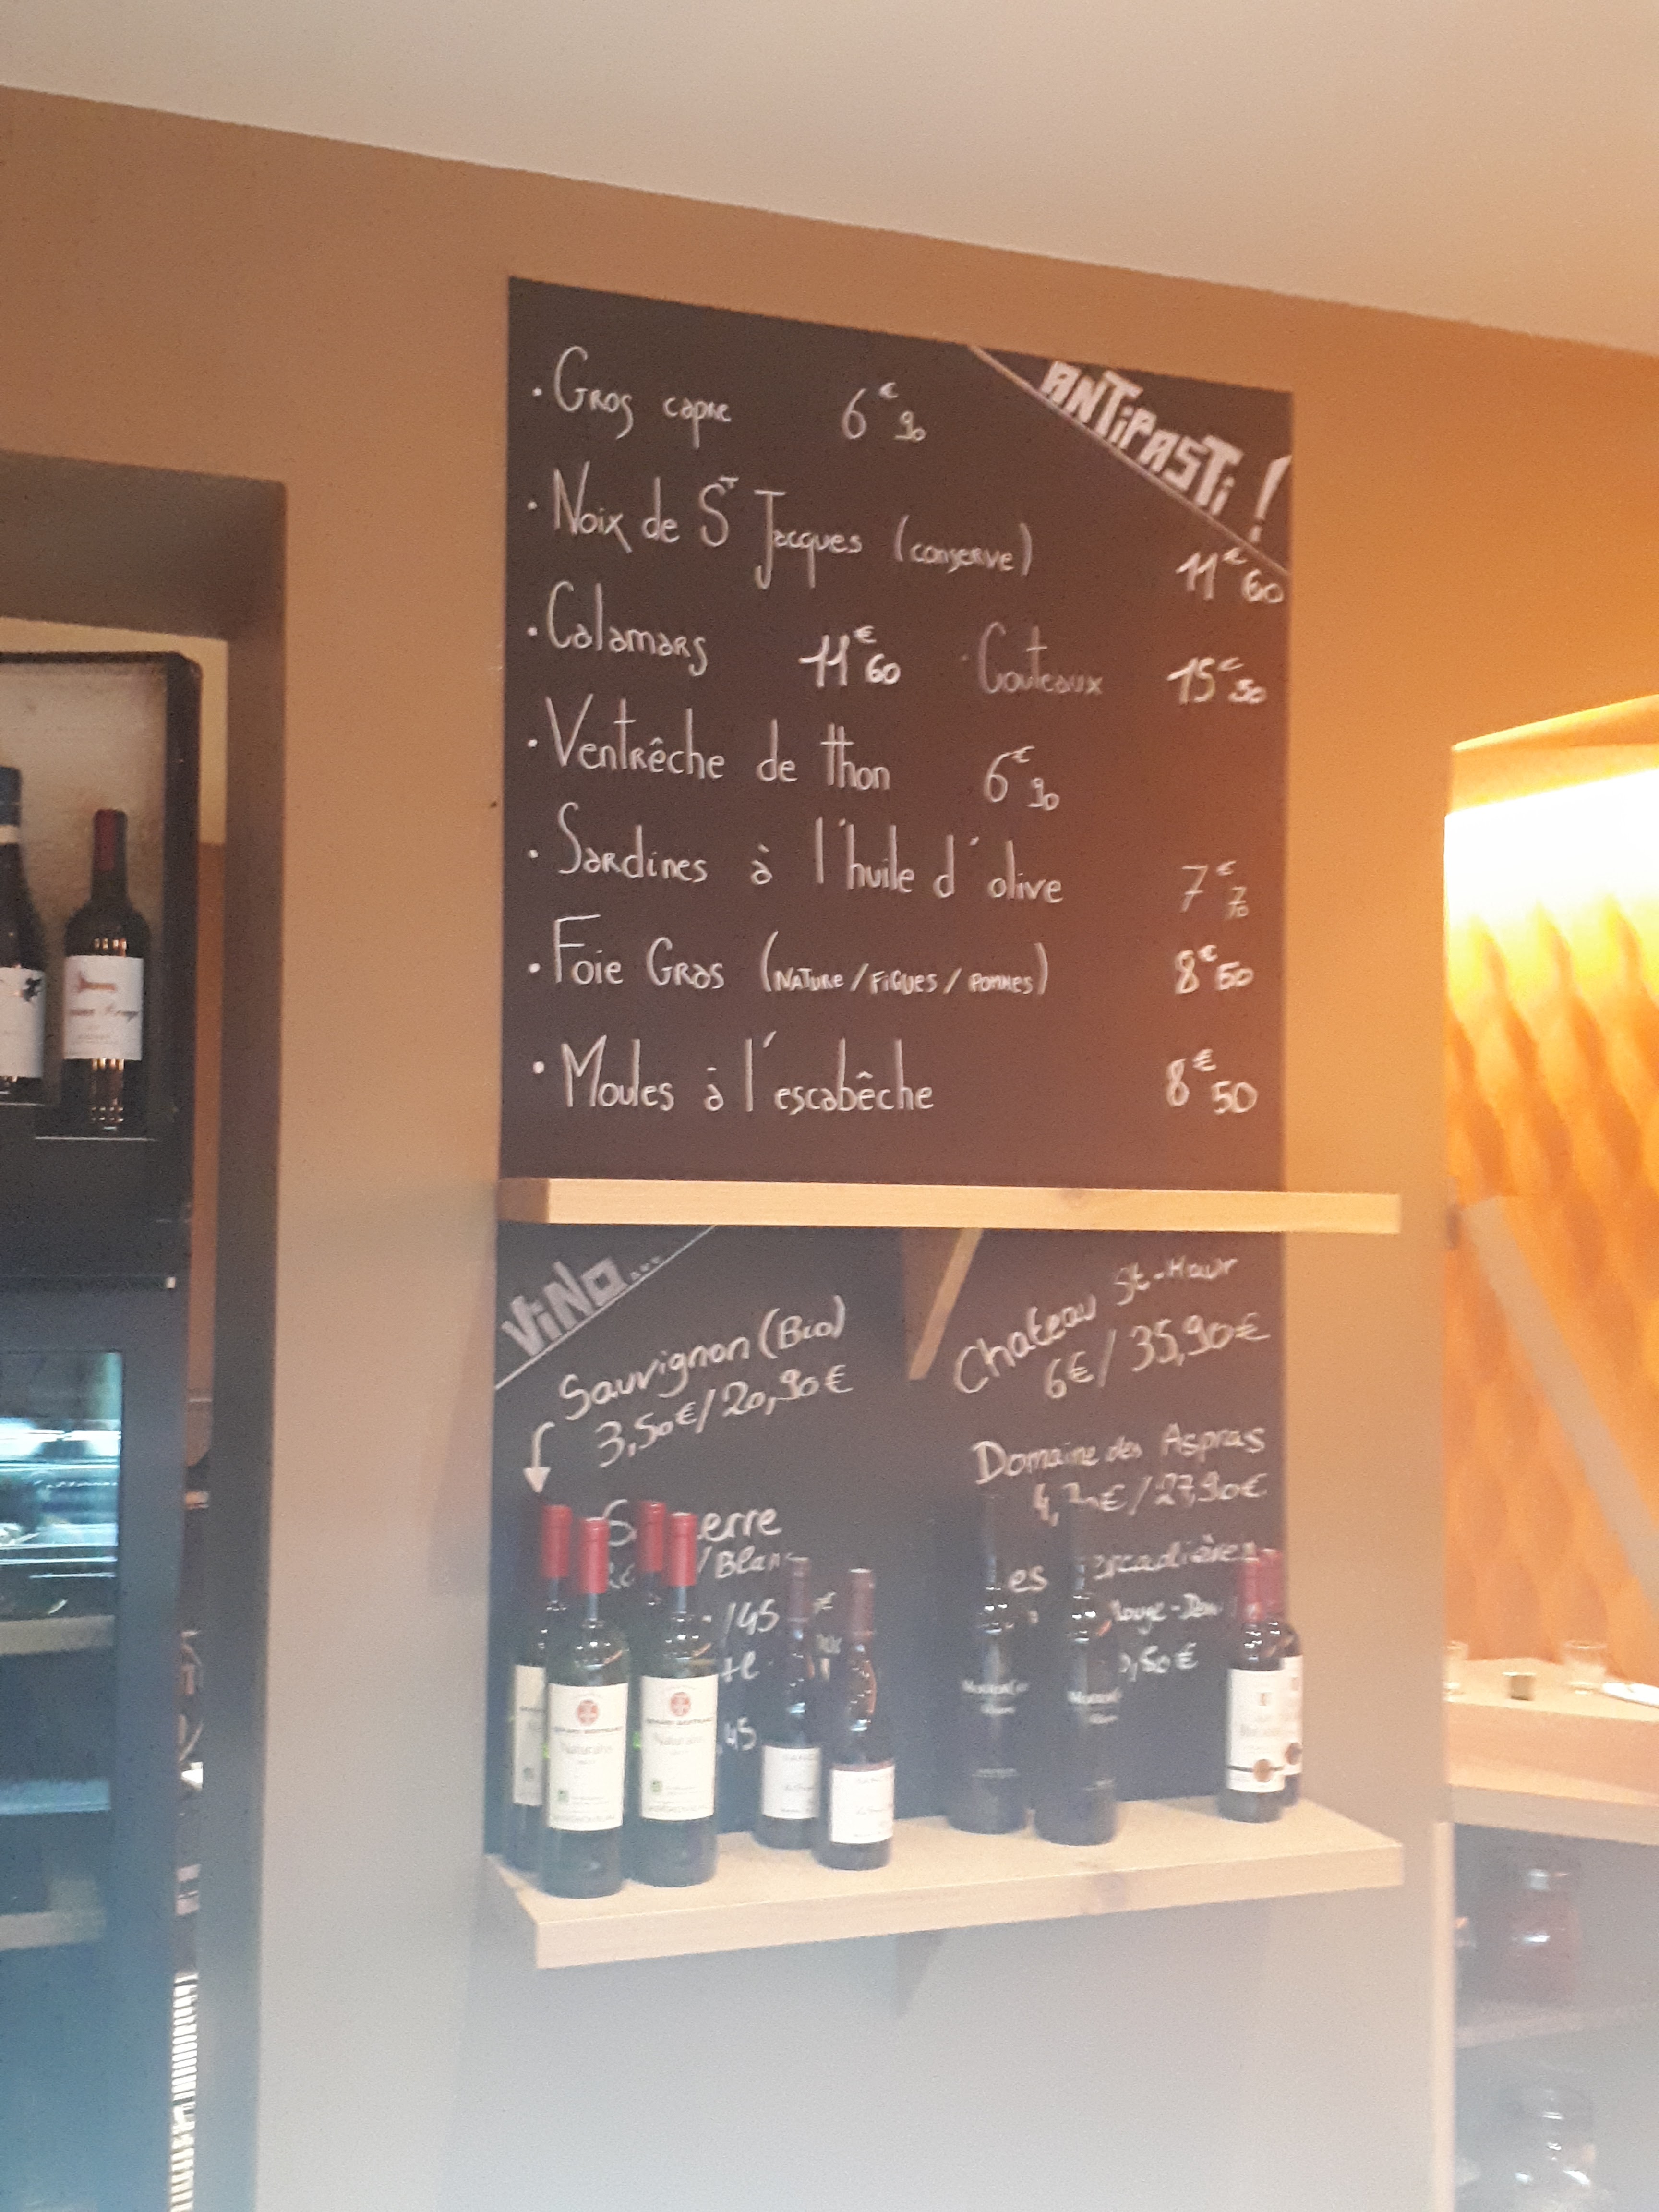 ANTIPASTI !
· Gros capre 6€90
· Noix de St Jacques (conserve) 11€60
· Calamars 11€60 · Couteaux 15€50
· Ventrêche de thon 6€90
· Sardines à l'huile d'olive 7€70
· Foie Gras (NATURE / FIGUES / POMMES) 8€50
· Moules à l'escabêche 8€50
VINO...
Sauvignon (Bio)
3,50€/20,90€
erre
/Blanc
/45
45
Chateau St-Maur
6€/ 35,90€
Domaine des Aspras
/27,90€
es
Rouge-
,50€
Naturalis
Naturalis